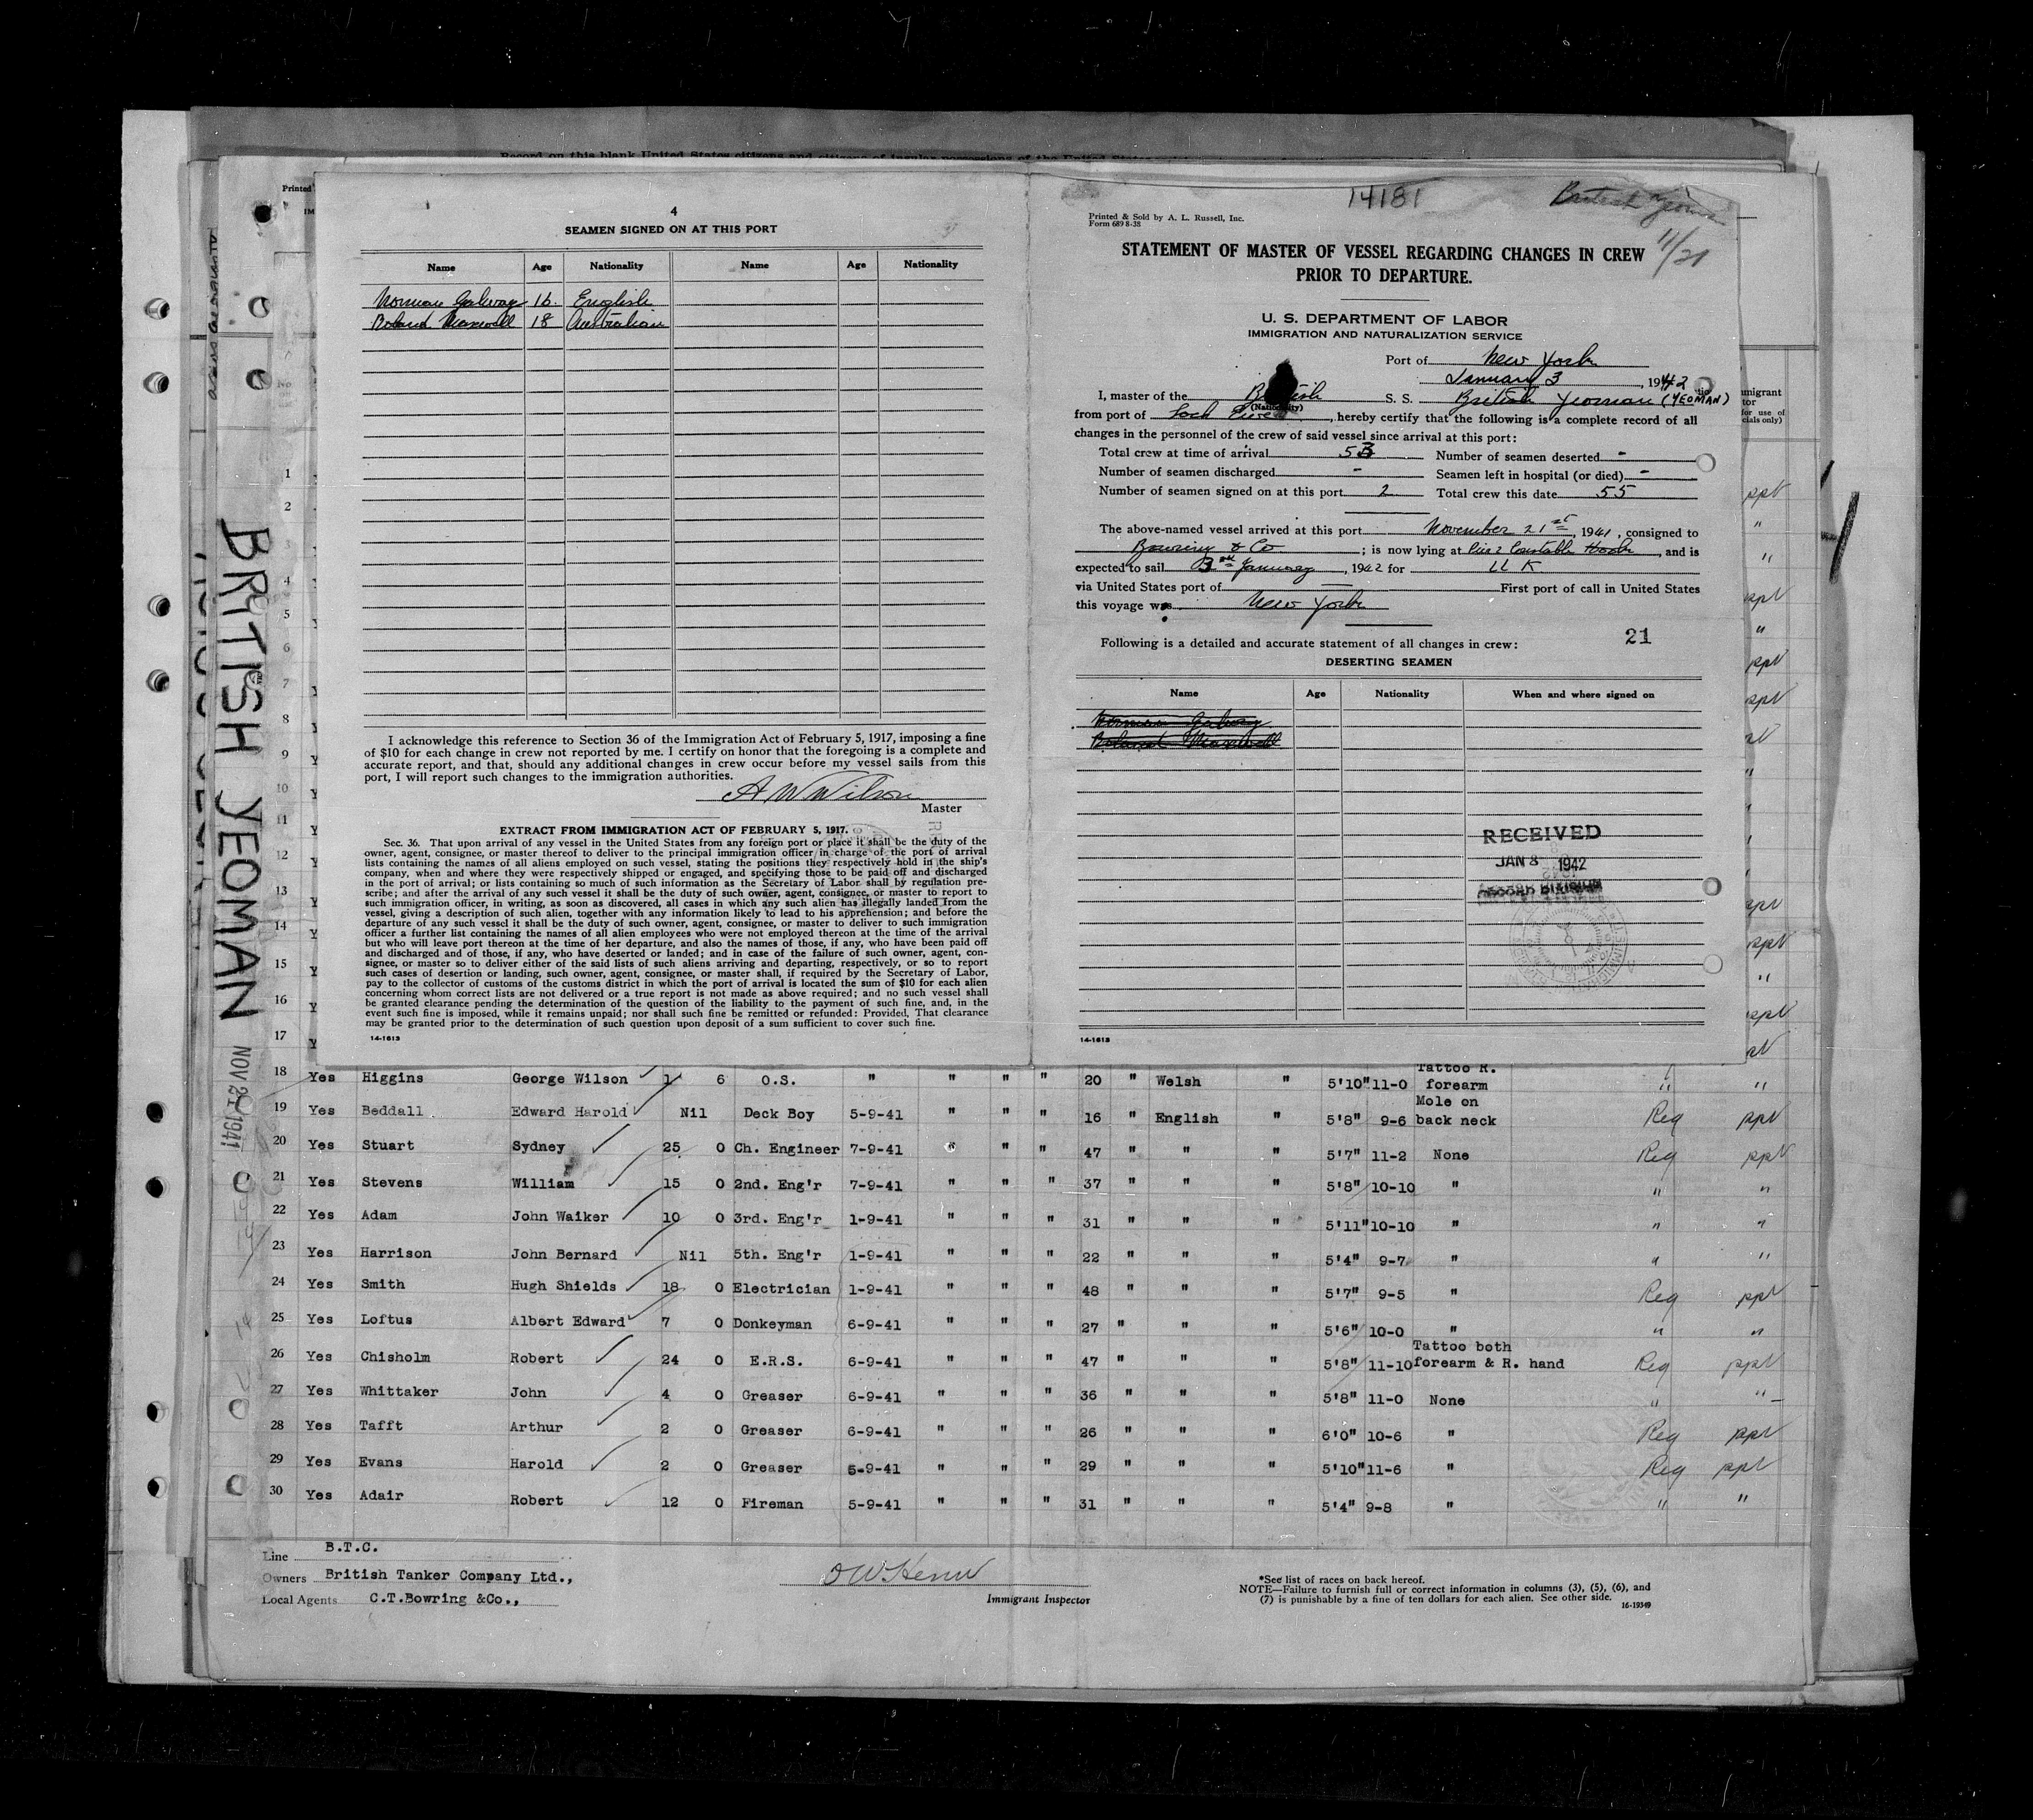 Printed
4
SEAMEN SIGNED ON AT THIS PORT
Name Age Nationality Name Age Nationality
Norman Galway 16. English
Boland Maxwell 18 Australian
I acknowledge this reference to Section 36 of the Immigration Act of February 5, 1917, imposing a fine
of $10 for each change in crew not reported by me. I certify on honor that the foregoing is a complete and
accurate report, and that, should any additional changes in crew occur before my vessel sails from this
port, I will report such changes to the immigration authorities.
A W Wilson
Master
EXTRACT FROM IMMIGRATION ACT OF FEBRUARY 5, 1917.
Sec. 36. That upon arrival of any vessel in the United States from any foreign port or place it shall be the duty of the
owner, agent, consignee, or master thereof to deliver to the principal immigration officer in charge of the port of arrival
lists containing the names of all aliens employed on such vessel, stating the positions they respectively hold in the ship's
company, when and where they were respectively shipped or engaged, and specifying those to be paid off and discharged
in the port of arrival; or lists containing so much of such information as the Secretary of Labor shall by regulation pre-
scribe; and after the arrival of any such vessel it shall be the duty of such owner, agent, consignee, or master to report to
such immigration officer, in writing, as soon as discovered, all cases in which any such alien has illegally landed from the
vessel, giving a description of such alien, together with any information likely to lead to his apprehension; and before the
departure of any such vessel it shall be the duty of such owner, agent, consignee, or master to deliver to such immigration
officer a further list containing the names of all alien employees who were not employed thereon at the time of the arrival
but who will leave port thereon at the time of her departure, and also the names of those, if any, who have been paid off
and discharged and of those, if any, who have deserted or landed; and in case of the failure of such owner, agent, con-
signee, or master so to deliver either of the said lists of such aliens arriving and departing, respectively, or so to report
such cases of desertion or landing, such owner, agent, consignee, or master shall, if required by the Secretary of Labor,
pay to the collector of customs of the customs district in which the port of arrival is located the sum of $10 for each alien
concerning whom correct lists are not delivered or a true report is not made as above required; and no such vessel shall
be granted clearance pending the determination of the question of the liability to the payment of such fine, and, in the
event such fine is imposed, while it remains unpaid; nor shall such fine be remitted or refunded: Provided, That clearance
may be granted prior to the determination of such question upon deposit of a sum sufficient to cover such fine.
14-1613
14181
British Yeoman
11/21
Printed & Sold by A. L. Russell, Inc.
Form 689 8-38
STATEMENT OF MASTER OF VESSEL REGARDING CHANGES IN CREW
PRIOR TO DEPARTURE.
U. S. DEPARTMENT OF LABOR
IMMIGRATION AND NATURALIZATION SERVICE
Port of New York
January 3, 1942
I, master of the British S. S. British Yeoman (YEOMAN)
(Nationality)
from port of Loch Ewe, hereby certify that the following is a complete record of all
changes in the personnel of the crew of said vessel since arrival at this port:
Total crew at time of arrival 53 Number of seamen deserted -
Number of seamen discharged - Seamen left in hospital (or died) -
Number of seamen signed on at this port 2 Total crew this date 55
The above-named vessel arrived at this port November 21st, 1941, consigned to
Bowring & Co; is now lying at Pier 2 Constable Hook, and is
expected to sail 3rd January, 1942 for U K
via United States port of First port of call in United States
this voyage was New York
Following is a detailed and accurate statement of all changes in crew: 21
DESERTING SEAMEN
Name Age Nationality When and where signed on
Norman Galway
Boland Maxwell
RECEIVED
JAN 8 1942
RECORD DIVISION
14-1613
BRITISH YEOMAN
NOV 21 1941
1
2
3
4
5
6
7
8
9
10
11
12
13
14
15
16
17
18 Yes Higgins George Wilson 1 6 O.S. " " " " 20 " Welsh " 5'10" 11-0 Tattoo R. forearm " "
19 Yes Beddall Edward Harold Nil Deck Boy 5-9-41 " " " 16 " English " 5'8" 9-6 Mole on back neck Reg ppt
20 Yes Stuart Sydney 25 0 Ch. Engineer 7-9-41 " " " 47 " " " 5'7" 11-2 None Reg ppt
21 Yes Stevens William 15 0 2nd. Eng'r 7-9-41 " " " 37 " " " 5'8" 10-10 " " "
22 Yes Adam John Walker 10 0 3rd. Eng'r 1-9-41 " " " 31 " " " 5'11" 10-10 " " "
23 Yes Harrison John Bernard Nil 5th. Eng'r 1-9-41 " " " 22 " " " 5'4" 9-7 " " "
24 Yes Smith Hugh Shields 18 0 Electrician 1-9-41 " " " 48 " " " 5'7" 9-5 " Reg ppt
25 Yes Loftus Albert Edward 7 0 Donkeyman 6-9-41 " " " 27 " " " 5'6" 10-0 " " "
26 Yes Chisholm Robert 24 0 E.R.S. 6-9-41 " " " 47 " " " 5'8" 11-10 Tattoo both forearm & R. hand Reg ppt
27 Yes Whittaker John 4 0 Greaser 6-9-41 " " " 36 " " " 5'8" 11-0 None " "
28 Yes Tafft Arthur 2 0 Greaser 6-9-41 " " " 26 " " " 6'0" 10-6 " Reg ppt
29 Yes Evans Harold 2 0 Greaser 5-9-41 " " " 29 " " " 5'10" 11-6 " Reg ppt
30 Yes Adair Robert 12 0 Fireman 5-9-41 " " " 31 " " " 5'4" 9-8 " " "
Line B.T.C.
Owners British Tanker Company Ltd.,
Local Agents C.T.Bowring &Co.,
Immigrant Inspector
*See list of races on back hereof.
NOTE—Failure to furnish full or correct information in columns (3), (5), (6), and
(7) is punishable by a fine of ten dollars for each alien. See other side.
16-19349